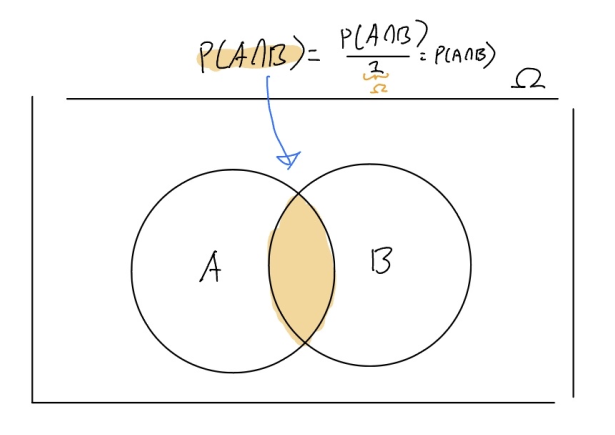 P(A∩B) = P(A∩B)/1 = P(A∩B)
Ω
Ω
A
B